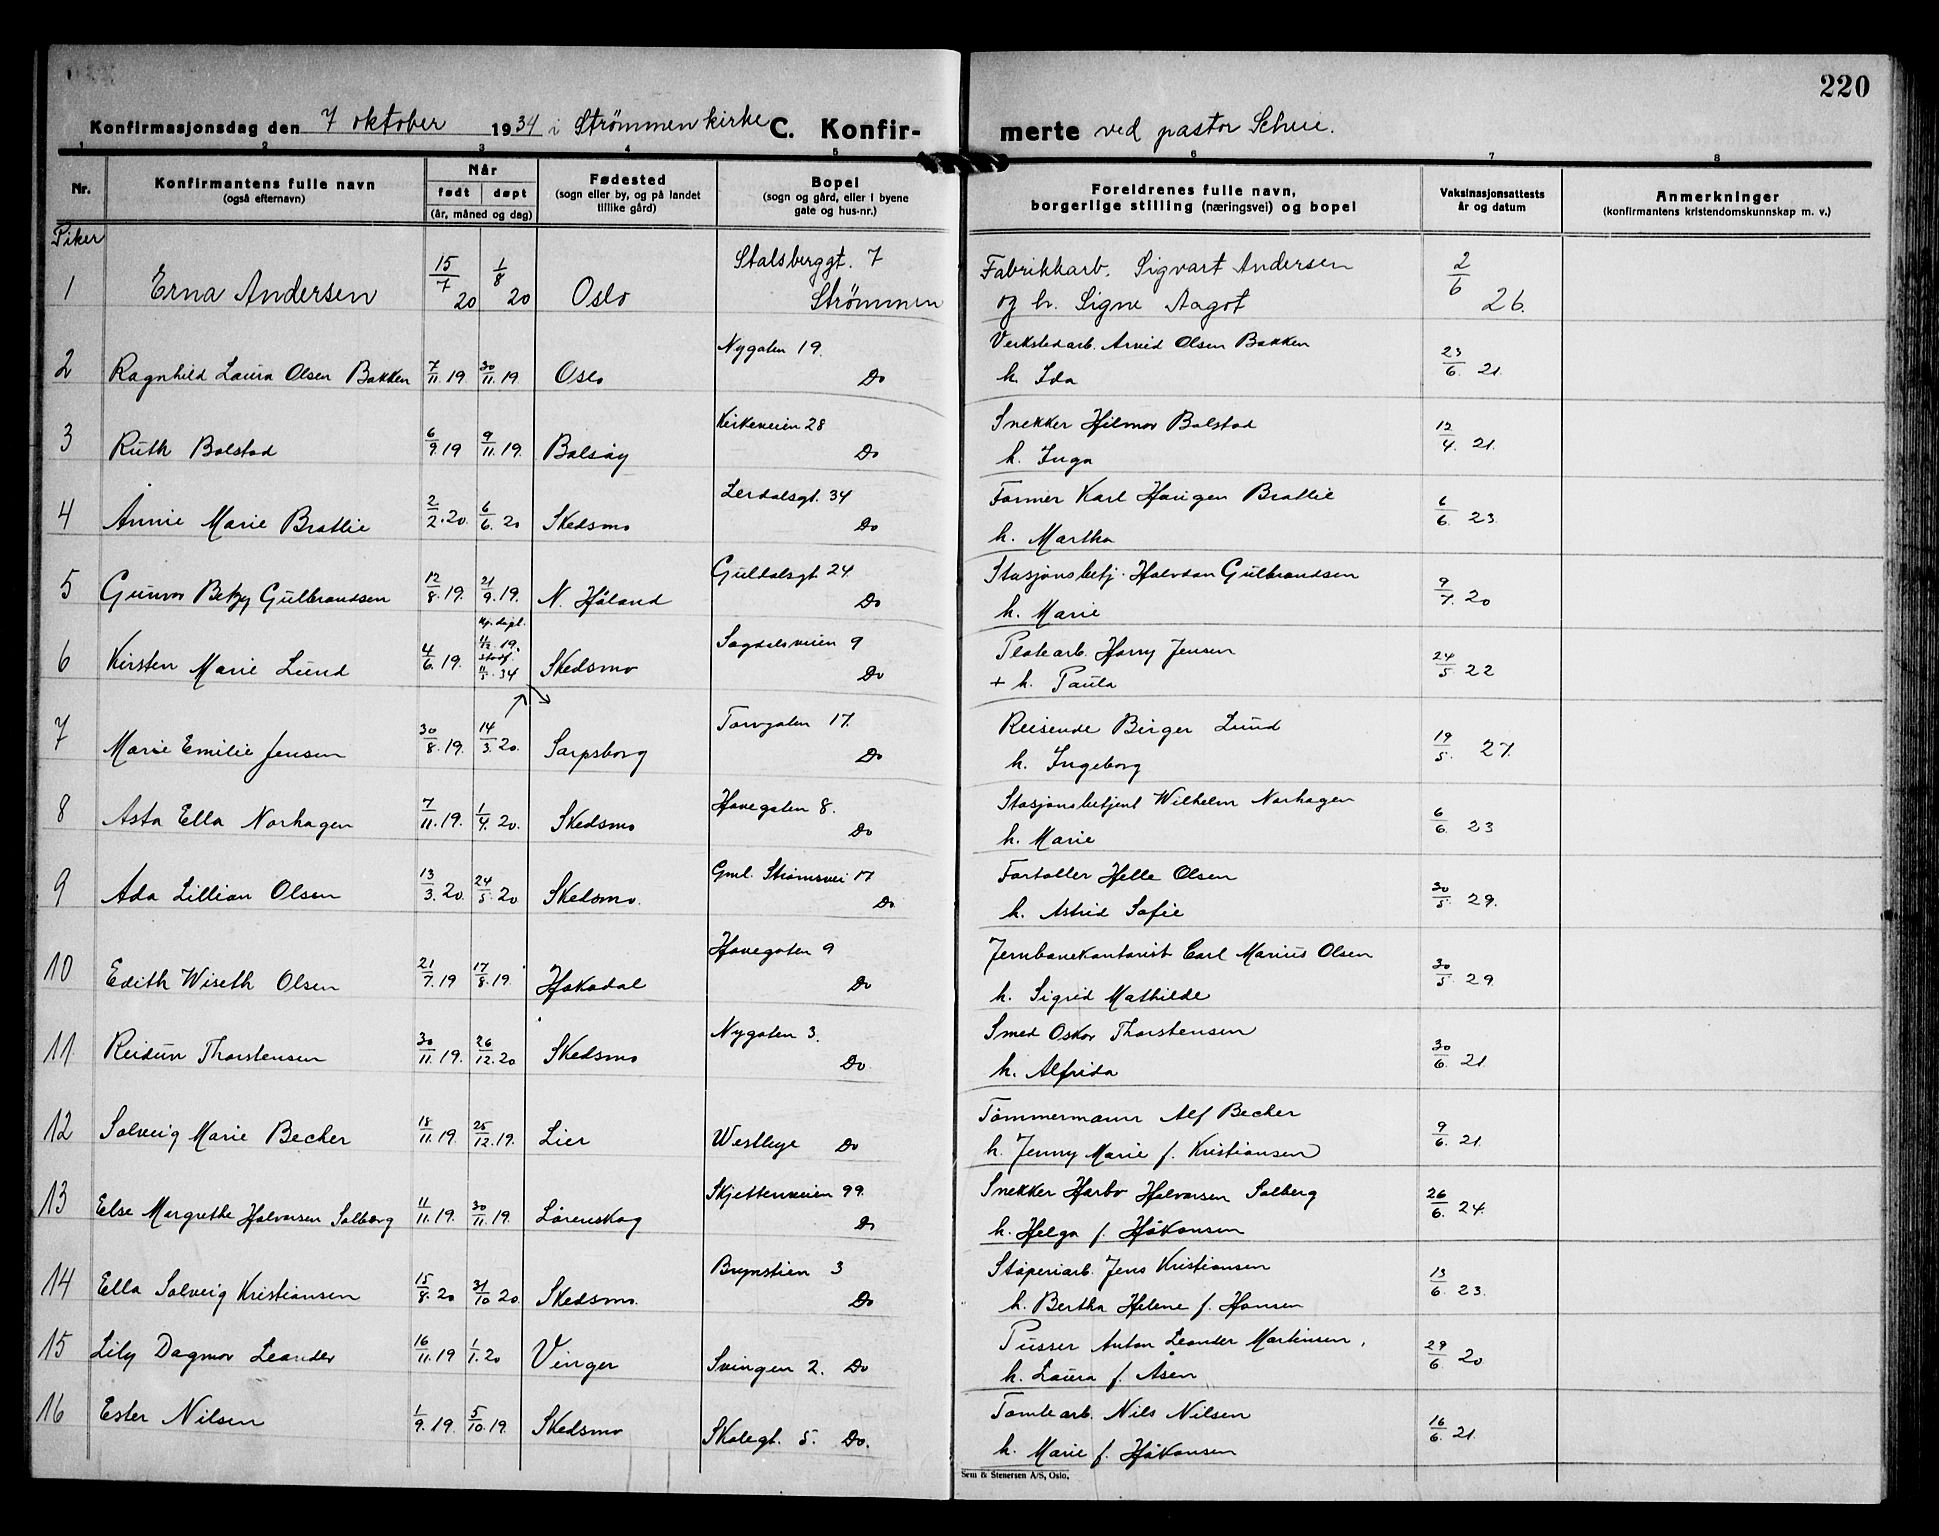 220
Konfirmasjonsdag den 7 oktober 1934 i Strømmen kirke C. Konfir- merte ved pastor
1 2 3 4 5 6 7 8
Nr.
Konfirmantens fulle navn
(også efternavn)
Når
født døpt
(år, måned og dag)
Fødested
(sogn eller by, og på landet
tillike gård)
Bopel
(sogn og gård, eller i byene
gate og hus-nr.)
Foreldrenes fulle navn,
borgerlige stilling (næringsvei) og bopel
Vaksinasjonsattests
år og datum
Anmerkninger
(konfirmantens kristendomskunnskap m. v.)
Piker
1 Erna Andersen 15/7 20 1/8 20 Oslo Stalsberggt. 7 Strømmen Fabrikkarb. Sigvart Andersen 2/6 26.
og h. Signe Aagot
2 Ragnhild Laura Olsen Bakken 7/11. 19 30/11. 19 Oslo Nygaten 19. Do Verkstedarb. Arvid Olsen Bakken 23/6. 21.
h. Ida
3 Ruth Bolstad 6/9. 19 9/11. 19. Bolsøy Kirkeveien 28 Do Snekker Hilmar Bolstad 12/4. 21.
h. Inga
4 Annie Marie Bratlie 2/2. 20. 6/6. 20 Skedsmo Lerdalsgt. 34 Do Former Karl Haugen Bratlie 6/6. 23.
h. Martha
5 Gunvor Betzy Gulbrandsen 12/8. 19. 21/9. 19. N. Høland Guldalsgt. 24 Do Stasjonsbetj. Halvdan Gulbrandsen 9/7. 20
h. Marie
6 Kirsten Marie Lund 4/6. 19. Hj. døpt. 11/12. 19. stadf. 11/5. 34 Skedsmo Sagdalsveien 9 Do Platearb. Harry Jensen 24/5. 22
+ h. Paula
7 Marie Emilie Jensen 30/8. 19. 14/3. 20. Sarpsborg Torvgaten 17. Do Reisende Birger Lund 19/5. 27.
h. Ingeborg
8 Asta Ella Norhagen 7/11. 19. 1/4. 20. Skedsmo Havegaten 8. Do Stasjonsbetjent Wilhelm Norhagen 6/6. 23
h. Marie
9 Ada Lillian Olsen 13/3. 20. 24/5. 20 Skedsmo. Gml. Strømsvei 17 Do Fortoller Helle Olsen 30/5. 29.
h. Astrid Sofie
10 Edith Wiseth Olsen 21/7. 19 17/8. 19. Hakadal Havegaten 9 Do Jernbanekontorist Carl Marius Olsen 30/5. 29.
h. Sigrid Mathilde
11 Reidun Thorstensen 30/11. 19. 26/12. 20 Skedsmo Nygaten 3. Do. Smed Oskar Thorstensen 30/6. 21.
h. Alfrida
12 Solveig Marie Becher 18/11. 19. 25/12. 19. Lier Westleye Do Tømmermann Alf Becher 9/6. 21.
h. Jenny Marie f. Kristiansen
13 Else Margrethe Halvorsen Solberg 11/11. 19. 30/11. 19. Lørenskog Skjettenveien 99. Do Snekker Harbo Halvorsen Solberg 26/6. 24.
h. Helga f. Håkonsen
14 Ella Solveig Kristiansen 15/8. 20 31/10 20. Skedsmo. Brynstien 3 Do Støperiarb. Jens Kristiansen 13/6. 23.
h. Bertha Helene f. Hansen
15 Lily Dagmar Leander 16/11. 19 1/1. 20 Vinger Svingen 2. Do Pusser Anton Leander Martinsen, 29/6. 20
h. Laura f. Åsen
16 Ester Nilsen 1/9. 19 5/10. 19 Skedsmo Skolegt. 5. Do. Tomtearb. Nils Nilsen 16/6. 21.
h. Marie f. Håkonsen
Sem & Stenersen A/S, Oslo.